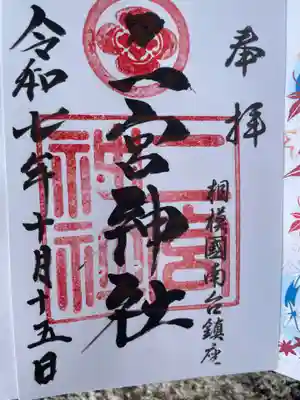 奉拝
相模國南台鎮座
二宮神社
二宮
神社
令和七年十月十五日